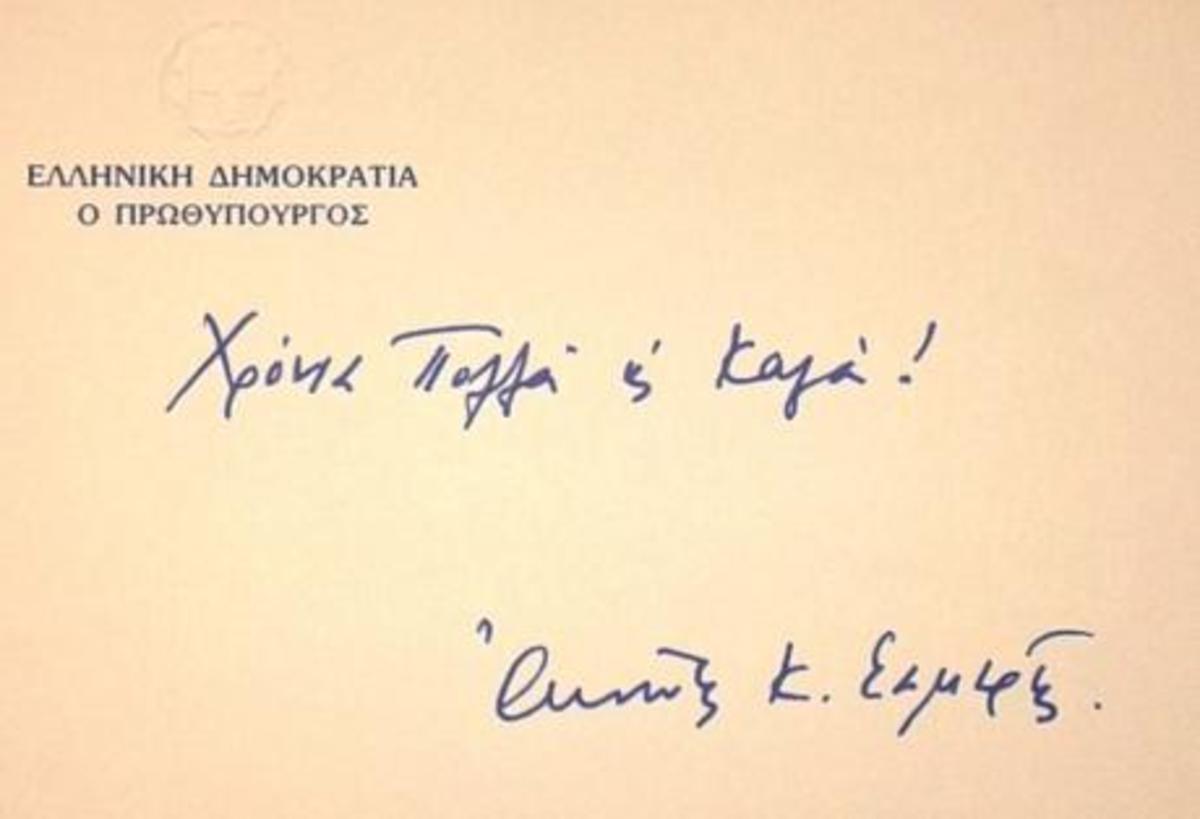 ΕΛΛΗΝΙΚΗ ΔΗΜΟΚΡΑΤΙΑ
Ο ΠΡΩΘΥΠΟΥΡΓΟΣ
Χρόνια Πολλά & Καλά!
Ἀντώνης Κ. Σαμαράς.